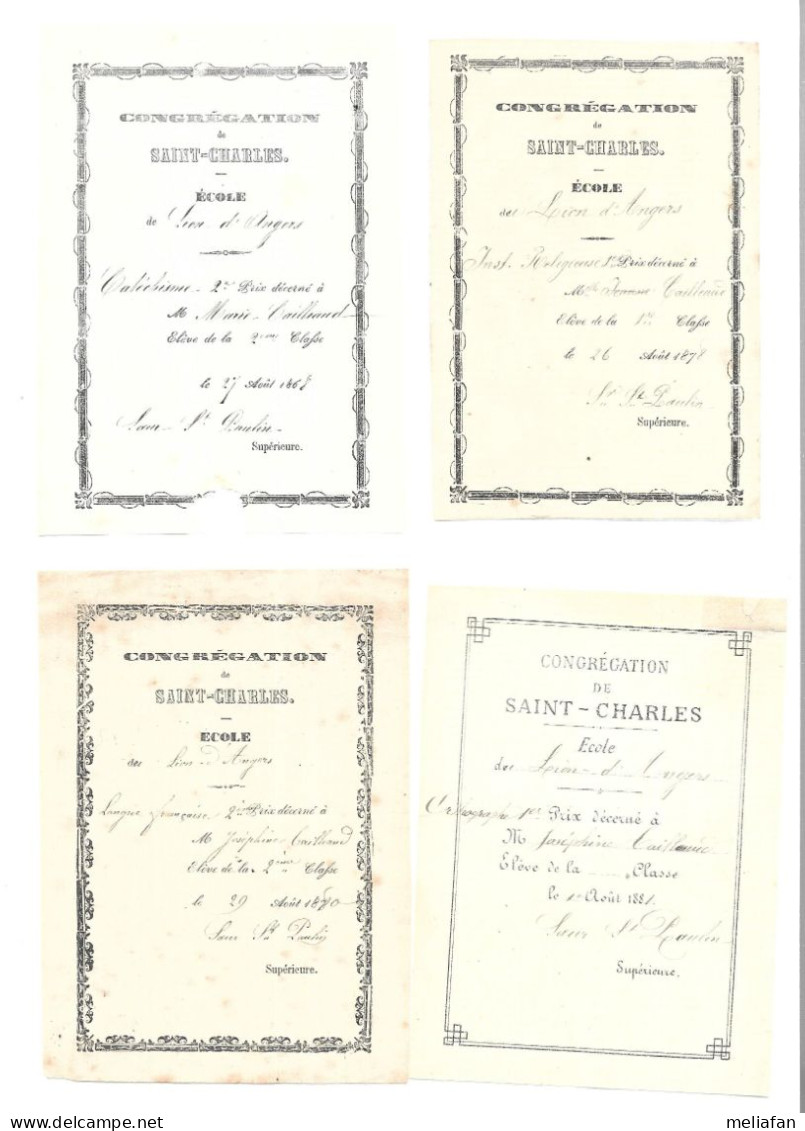 CONGRÉGATION
de
SAINT-CHARLES.
ÉCOLE
de Lion d'Angers
Catéchisme 2e Prix décerné à
M Marie Cailleaud
Elève de la 2eme Classe
le 27 Août 1868
Sœur St Paulin
Supérieure.
CONGRÉGATION
de
SAINT-CHARLES.
ÉCOLE
du Lion d'Angers
Inst. Religieuse 1er Prix décerné à
Mlle Jeanne Cailleaud
Elève de la 1re Classe
le 26 Août 1878
Sr St Paulin
Supérieure.
CONGRÉGATION
de
SAINT-CHARLES.
ECOLE
du Lion-d'Angers
Langue française 2ème Prix décerné à
M Joséphine Cailleaud
Elève de la 2ème Classe
le 29 Août 1870
Sœur St Paulin
Supérieure.
CONGRÉGATION
DE
SAINT-CHARLES
Ecole
du Lion-d'Angers
Orthographe 1er Prix décerné à
M Joséphine Cailleaud
Elève de la Classe
le 1er Août 1881
Sœur St Paulin
Supérieure.
meliafan